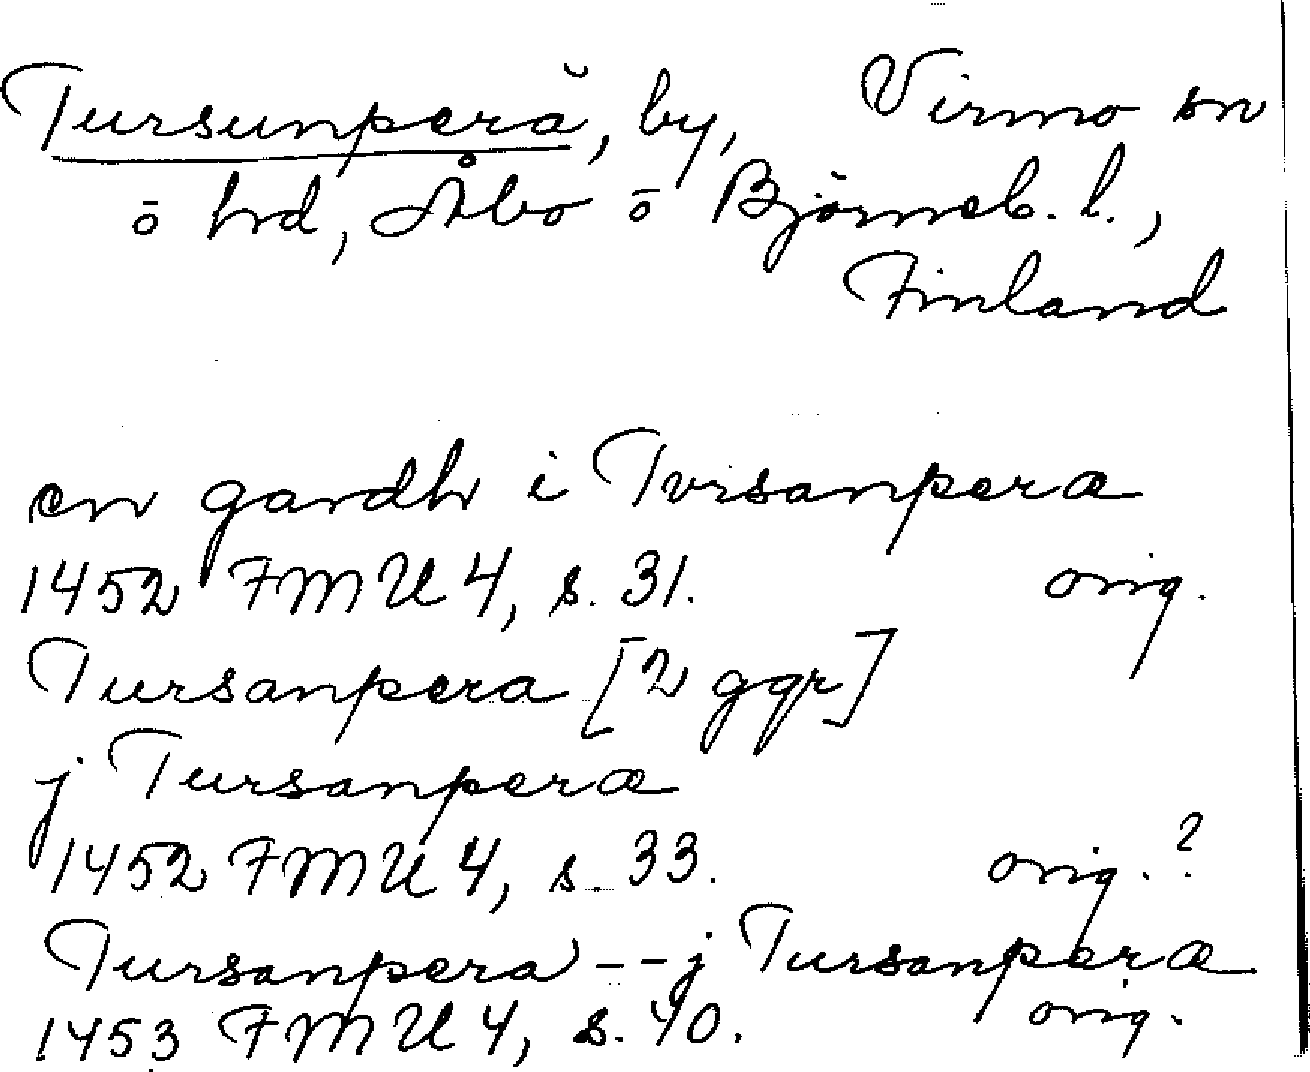 Tursunperä, by, Virmo sn
o hd, Åbo o Björneb. l.,
Finland
en gardh i Tvrsanpera
1452 FMU 4, s. 31. orig.
Tursanpera [2 ggr]
j Tursanpera
1452 FMU 4, s. 33. orig.?
Tursanpera -- j Tursanpera
1453 FMU 4, s. 40. orig.